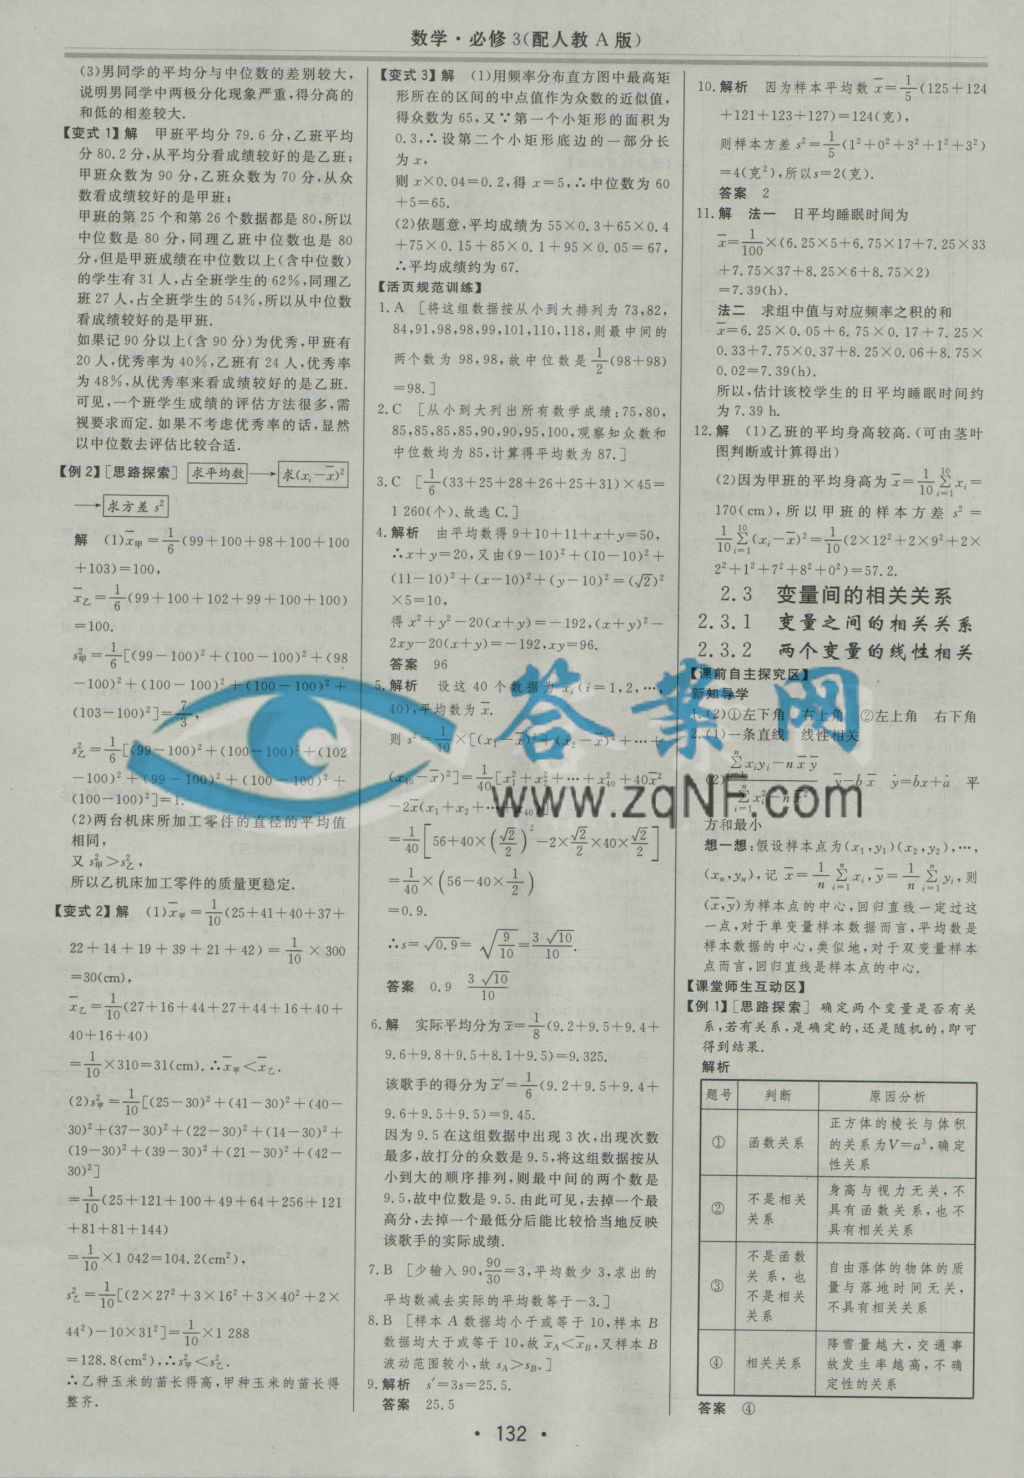 数学·必修3(配人教A版)
(3)男同学的平均分与中位数的差别较大,
说明男同学中两极分化现象严重,得分高的
和低的相差较大.
【变式1】解 甲班平均分79.6分,乙班平均
分80.2分,从平均分看成绩较好的是乙班;
甲班众数为90分,乙班众数为70分,从众
数看成绩较好的是甲班;
甲班的第25个和第26个数据都是80,所以
中位数是80分,同理乙班中位数也是80
分,但是甲班成绩在中位数以上(含中位数)
的学生有31人,占全班学生的62%,同理乙
班27人,占全班学生的54%,所以从中位数
看成绩较好的是甲班.
如果记90分以上(含90分)为优秀,甲班有
20人,优秀率为40%,乙班有24人,优秀率
为48%,从优秀率来看成绩较好的是乙班.
可见,一个班学生成绩的评估方法很多,需
视要求而定.如果不考虑优秀率的话,显然
以中位数去评估比较合适.
【例2】[思路探索] 求平均数→求(xᵢ-x̄)²
→求方差s²
解 (1)x̄甲=1/6(99+100+98+100+100
+103)=100,
x̄乙=1/6(99+100+102+99+100+100)
=100.
s²甲=1/6[(99-100)²+(100-100)²+(98
-100)²+(100-100)²+(100-100)²+
(103-100)²]=7/3,
s²乙=1/6[(99-100)²+(100-100)²+(102
-100)²+(99-100)²+(100-100)²+
(100-100)²]=1.
(2)两台机床所加工零件的直径的平均值
相同,
又s²甲>s²乙,
所以乙机床加工零件的质量更稳定.
【变式2】解 (1)x̄甲=1/10(25+41+40+37+
22+14+19+39+21+42)=1/10×300
=30(cm),
x̄乙=1/10(27+16+44+27+44+16+40+
40+16+40)
=1/10×310=31(cm).∴x̄甲<x̄乙.
(2)s²甲=1/10[(25-30)²+(41-30)²+(40-
30)²+(37-30)²+(22-30)²+(14-30)²+
(19-30)²+(39-30)²+(21-30)²+(42-
30)²]
=1/10(25+121+100+49+64+256+121
+81+81+144)
=1/10×1 042=104.2(cm²),
s²乙=1/10[(2×27²+3×16²+3×40²+2×
44²)-10×31²]=1/10×1 288
=128.8(cm²).∴s²甲<s²乙.
∴乙种玉米的苗长得高,甲种玉米的苗长得
整齐.
【变式3】解 (1)用频率分布直方图中最高矩
形所在的区间的中点值作为众数的近似值,
得众数为65,又∵第一个小矩形的面积为
0.3,∴设第二个小矩形底边的一部分长
为x,
则x×0.04=0.2,得x=5,∴中位数为60
+5=65.
(2)依题意,平均成绩为55×0.3+65×0.4
+75×0.15+85×0.1+95×0.05=67,
∴平均成绩约为67.
【活页规范训练】
1.A [将这组数据按从小到大排列为73,82,
84,91,98,98,99,101,110,118,则最中间的
两个数为98,98,故中位数是1/2(98+98)
=98.]
2.C [从小到大列出所有数学成绩:75,80,
85,85,85,85,90,90,95,100,观察知众数和
中位数均为85,计算得平均数为87.]
3.C [1/6(33+25+28+26+25+31)×45=
1 260(个)、故选C.]
4.解析 由平均数得9+10+11+x+y=50,
∴x+y=20,又由(9-10)²+(10-10)²+
(11-10)²+(x-10)²+(y-10)²=(√2)²
×5=10,
得x²+y²-20(x+y)=-192,(x+y)²-
2xy-20(x+y)=-192,xy=96.
答案 96
5.解析 设这40个数据为xᵢ(i=1,2,…,
40),平均数为x̄.
则s²=1/40×[(x₁-x̄)²+(x₂-x̄)²+…+
(x₄₀-x̄)²]=1/40[x₁²+x₂²+…+x₄₀²+40x̄²
-2x̄(x₁+x₂+…+x₄₀)]
=1/40[56+40×(√2/2)²-2×√2/2×40×√2/2]
=1/40×(56-40×1/2)
=0.9.
∴s=√0.9=√(9/10)=3√10/10.
答案 0.9 3√10/10
6.解 实际平均分为x̄=1/8(9.2+9.5+9.4+
9.6+9.8+9.5+8.1+9.5)=9.325.
该歌手的得分为x̄′=1/6(9.2+9.5+9.4+
9.6+9.5+9.5)=9.45.
因为9.5在这组数据中出现3次,出现次数
最多,故打分的众数是9.5,将这组数据按从
小到大的顺序排列,则最中间的两个数是
9.5,故中位数是9.5.由此可见,去掉一个最
高分,去掉一个最低分后能比较恰当地反映
该歌手的实际成绩.
7.B [少输入90,90/30=3,平均数少3,求出的
平均数减去实际的平均数等于-3.]
8.B [样本A数据均小于或等于10,样本B
数据均大于或等于10,故x̄A<x̄B,又样本B
波动范围较小,故sA>sB.]
9.解析 s′=3s=25.5.
答案 25.5
10.解析 因为样本平均数x̄=1/5(125+124
+121+123+127)=124(克),
则样本方差s²=1/5(1²+0²+3²+1²+3²)
=4(克²),所以s=2(克).
答案 2
11.解 法一 日平均睡眠时间为
x̄=1/100×(6.25×5+6.75×17+7.25×33
+7.75×37+8.25×6+8.75×2)
=7.39(h).
法二 求组中值与对应频率之积的和
x̄=6.25×0.05+6.75×0.17+7.25×
0.33+7.75×0.37+8.25×0.06+8.75×
0.02=7.39(h).
所以,估计该校学生的日平均睡眠时间约
为7.39 h.
12.解 (1)乙班的平均身高较高.(可由茎叶
图判断或计算得出)
(2)因为甲班的平均身高为x̄=1/10∑xᵢ=
170(cm),所以甲班的样本方差s²=
1/10∑(xᵢ-x̄)²=1/10(2×12²+2×9²+2×
2²+1²+7²+8²+0²)=57.2.
2.3 变量间的相关关系
2.3.1 变量之间的相关关系
2.3.2 两个变量的线性相关
【课前自主探究区】
新知导学
1.(2)①左下角 右上角 ②左上角 右下角
2.(1)一条直线 线性相关
(2)(∑xᵢyᵢ-nx̄ȳ)/(∑xᵢ²-nx̄²) ȳ-b̂x̄ ŷ=b̂x+â 平
方和最小
想一想:假设样本点为(x₁,y₁)(x₂,y₂),…,
(xₙ,yₙ),记x̄=1/n∑xᵢ,ȳ=1/n∑yᵢ,则
(x̄,ȳ)为样本点的中心,回归直线一定过这
一点,对于单变量样本数据而言,平均数是
样本数据的中心,类似地,对于双变量样本
点而言,回归直线是样本点的中心.
【课堂师生互动区】
【例1】[思路探索] 确定两个变量是否有关
系,若有关系,是确定的,还是随机的,即可
得到结果.
解析
题号 判断 原因分析
① 函数关系 正方体的棱长与体积
的关系为V=a³,确定
性关系
② 不是相关
关系 身高与视力无关,不
具有函数关系,也不
具有相关关系
③ 不是函数
关系,也
不是相关
关系 自由落体的物体的质
量与落地时间无关,
不具有相关关系
④ 相关关系 降雪量越大,交通事
故发生率越高,不确
定性的关系
答案 ④
答案网
www.zqNF.com
·132·